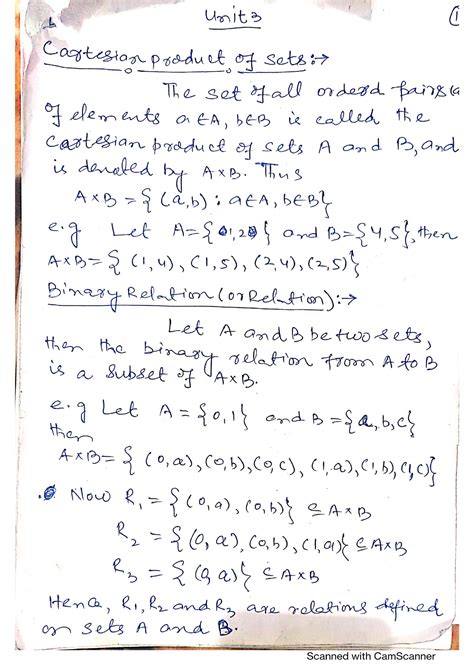 Unit 3
1
Cartesian product of sets:→
The set of all orderd pairs (a
of elements a ∈ A, b ∈ B is called the
cartesian product of sets A and B, and
is denoted by A×B. Thus
A×B = { (a,b) : a∈A, b∈B}
e.g Let A={1,2} and B={4,5}, then
A×B= { (1,4), (1,5), (2,4), (2,5)}
Binary Relation (or Relation):→
Let A and B be two sets,
then the binary relation from A to B
is a subset of A×B.
e.g Let A = {0,1} and B = {a,b,c}
then
A×B= { (0,a), (0,b), (0,c), (1,a), (1,b), (1,c)}
Now R₁ = { (0,a), (0,b)} ⊆ A×B
R₂ = { (0,a), (0,b), (1,a)} ⊆ A×B
R₃ = { (0,a)} ⊆ A×B
Hence, R₁, R₂ and R₃ are relations defined
on sets A and B.
Scanned with CamScanner